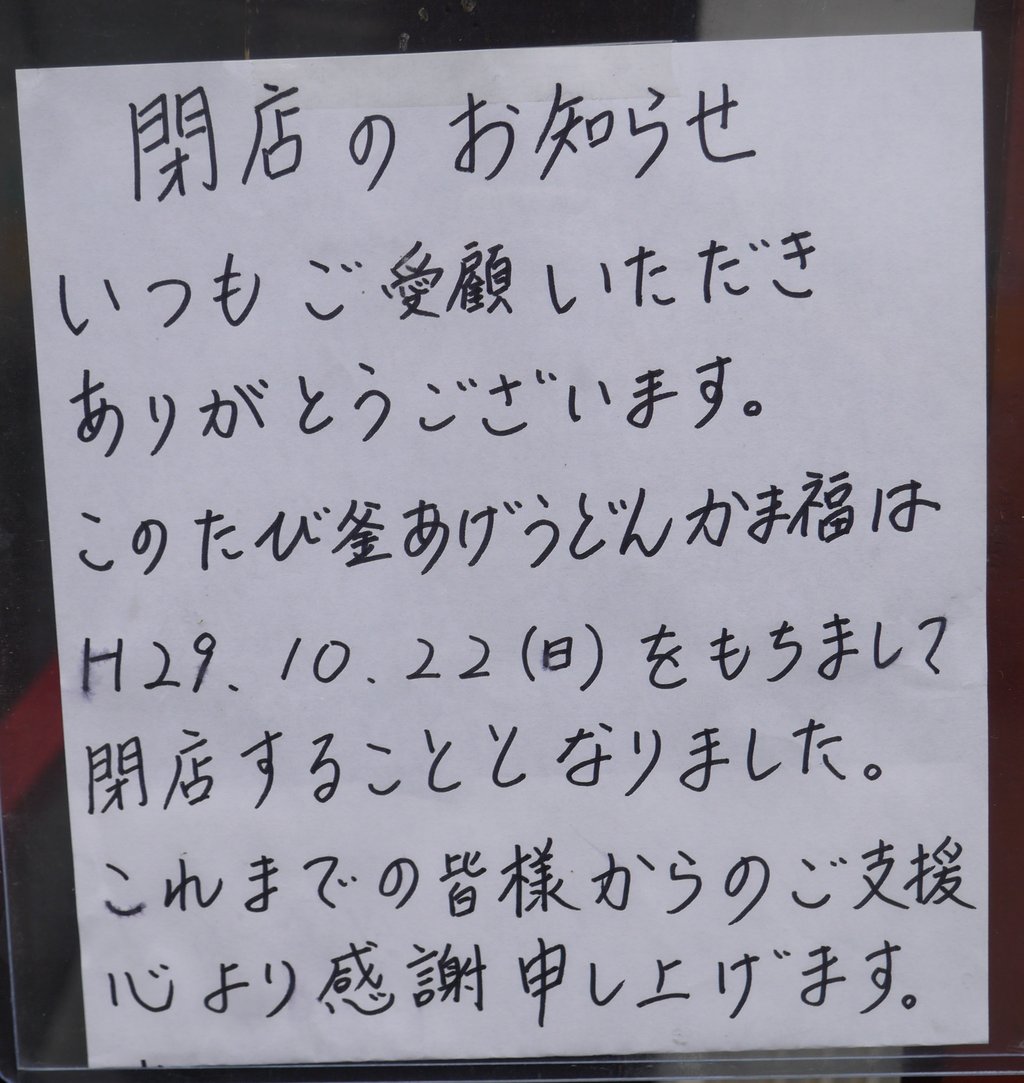 閉店のお知らせ
いつもご愛顧いただき
ありがとうございます。
このたび釜あげうどんかま福は
H29.10.22(日)をもちまして
閉店することとなりました。
これまでの皆様からのご支援
心より感謝申し上げます。